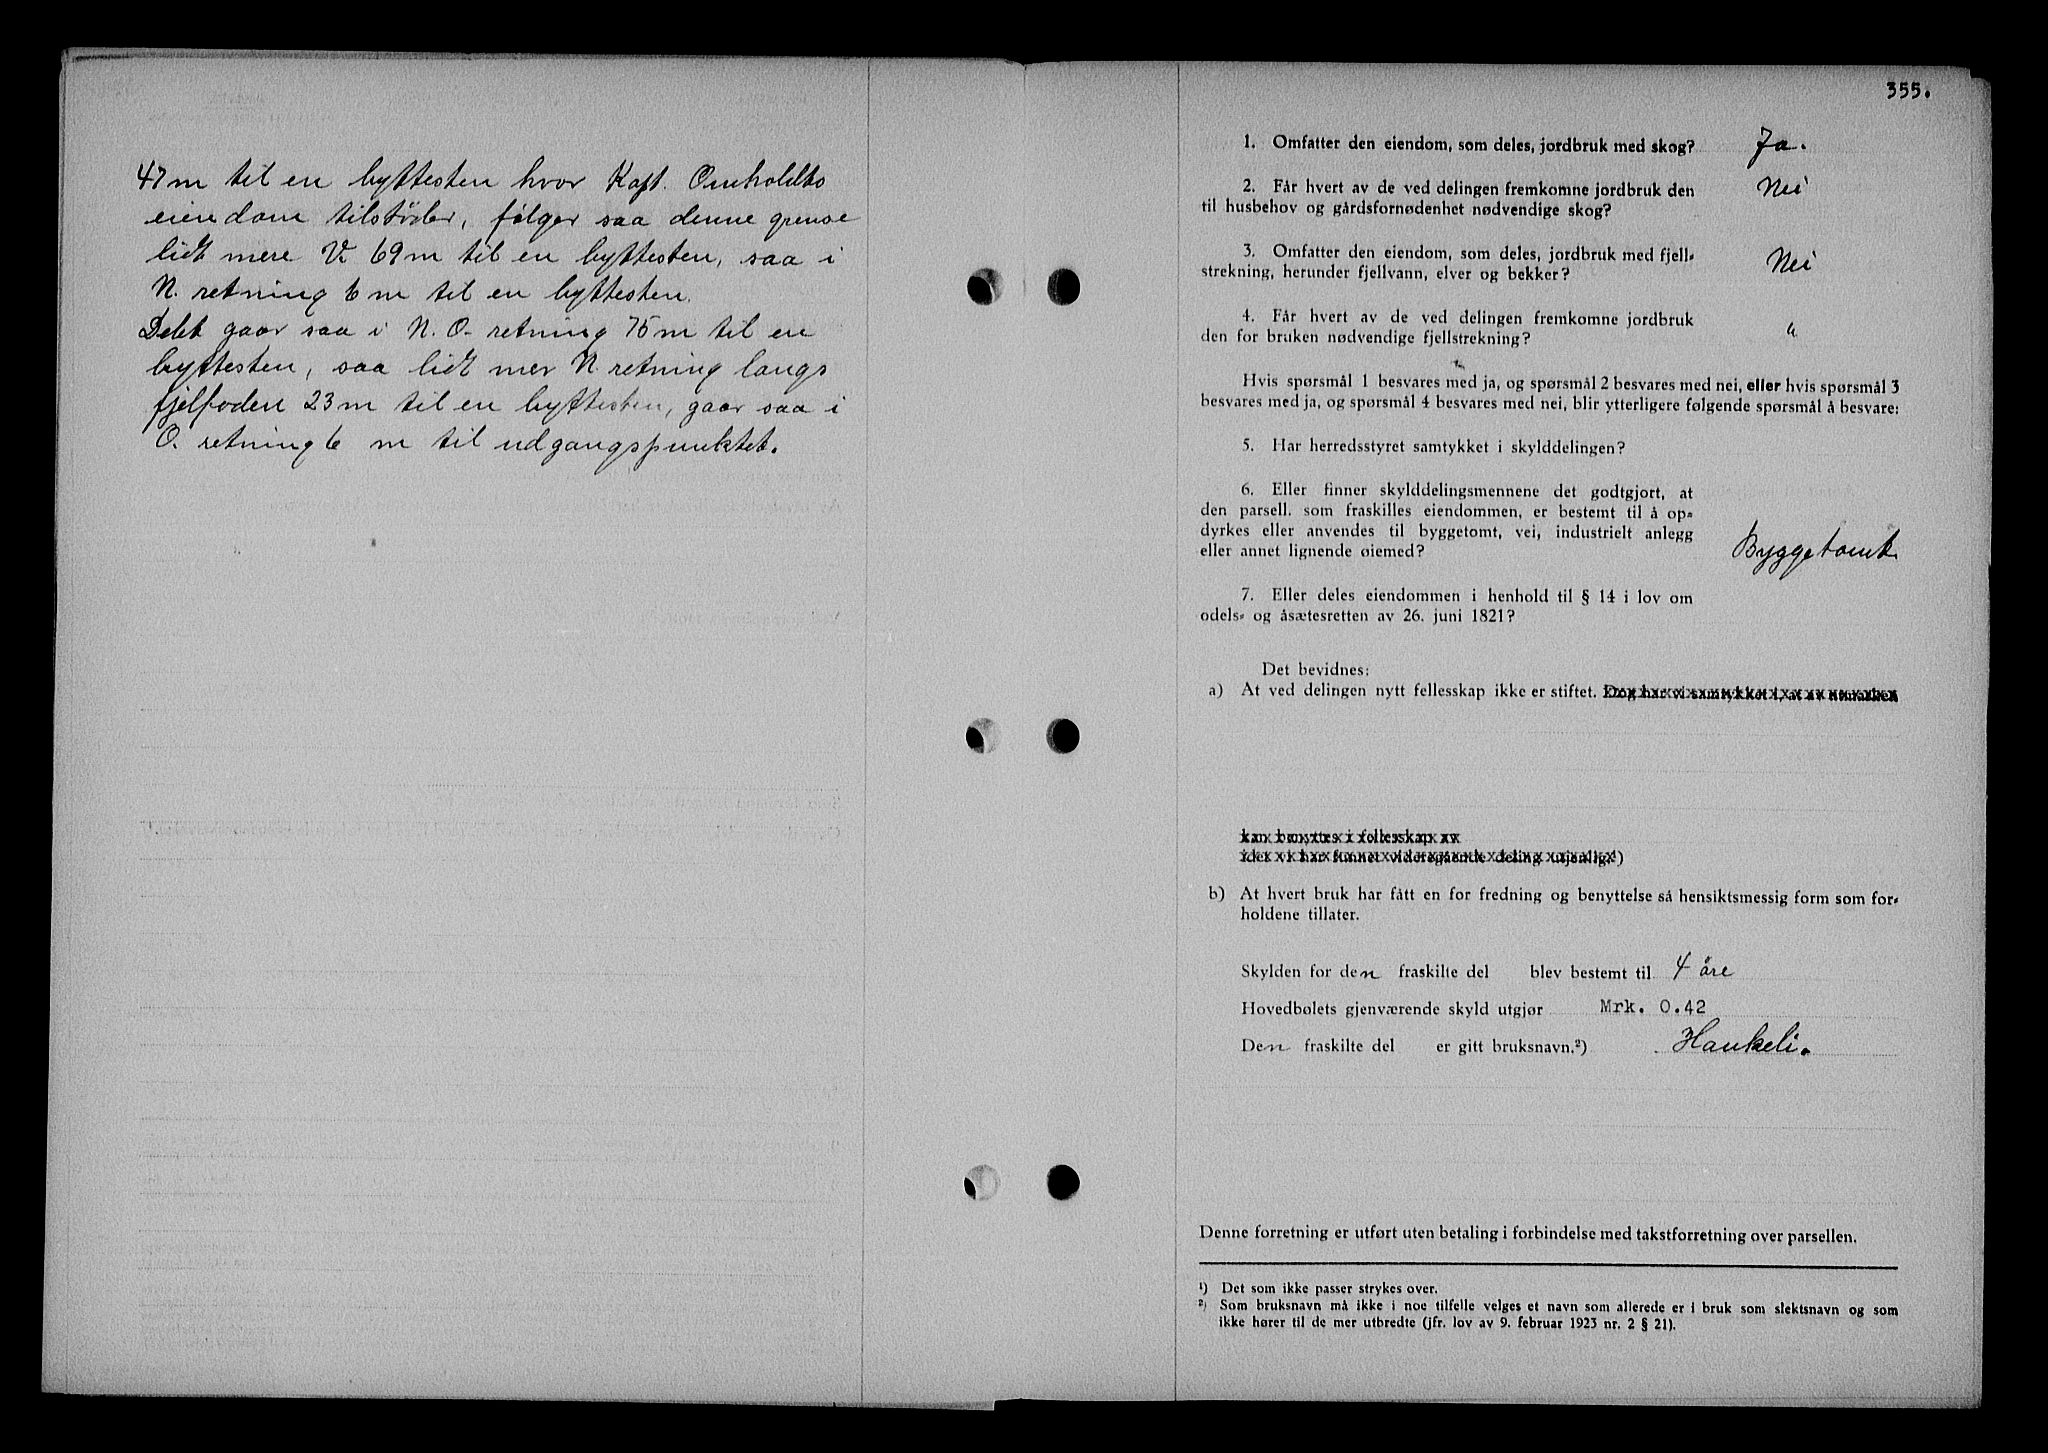 47 m til en byttesten hvor Kapt. Omholdts
eiendom tilstöder, følger saa denne grense
lidt mere V. 69 m til en byttesten, saa i
N. retning 6 m til en byttesten.
Delet gaar saa i N. O. retning 75 m til en
byttesten, saa lidt mer N. retning langs
fjelfoden 23 m til en byttesten, gaar saa i
O. retning 6 m til udgangspunktet.
355.
1. Omfatter den eiendom, som deles, jordbruk med skog? Ja.
2. Får hvert av de ved delingen fremkomne jordbruk den Nei
til husbehov og gårdsfornødenhet nødvendige skog?
3. Omfatter den eiendom, som deles, jordbruk med fjell-
strekning, herunder fjellvann, elver og bekker? Nei
4. Får hvert av de ved delingen fremkomne jordbruk
den for bruken nødvendige fjellstrekning? "
Hvis spørsmål 1 besvares med ja, og spørsmål 2 besvares med nei, eller hvis spørsmål 3
besvares med ja, og spørsmål 4 besvares med nei, blir ytterligere følgende spørsmål å besvare:
5. Har herredsstyret samtykket i skylddelingen?
6. Eller finner skylddelingsmennene det godtgjort, at
den parsell. som fraskilles eiendommen, er bestemt til å op-
dyrkes eller anvendes til byggetomt, vei, industrielt anlegg
eller annet lignende øiemed? Byggetomt
7. Eller deles eiendommen i henhold til § 14 i lov om
odels- og åsætesretten av 26. juni 1821?
Det bevidnes:
a) At ved delingen nytt fellesskap ikke er stiftet. Dog har vi samtykket i, at av utmarken
kan benyttes i fellesskap av
idet vi har funnet videregående deling utjenlig.¹)
b) At hvert bruk har fått en for fredning og benyttelse så hensiktsmessig form som for-
holdene tillater.
Skylden for den fraskilte del blev bestemt til 4 öre
Hovedbølets gjenværende skyld utgjør Mrk. 0.42
Den fraskilte del er gitt bruksnavn.²) Haukeli.
Denne forretning er utført uten betaling i forbindelse med takstforretning over parsellen.
¹) Det som ikke passer strykes over.
²) Som bruksnavn må ikke i noe tilfelle velges et navn som allerede er i bruk som slektsnavn og som
ikke hører til de mer utbredte (jfr. lov av 9. februar 1923 nr. 2 § 21).